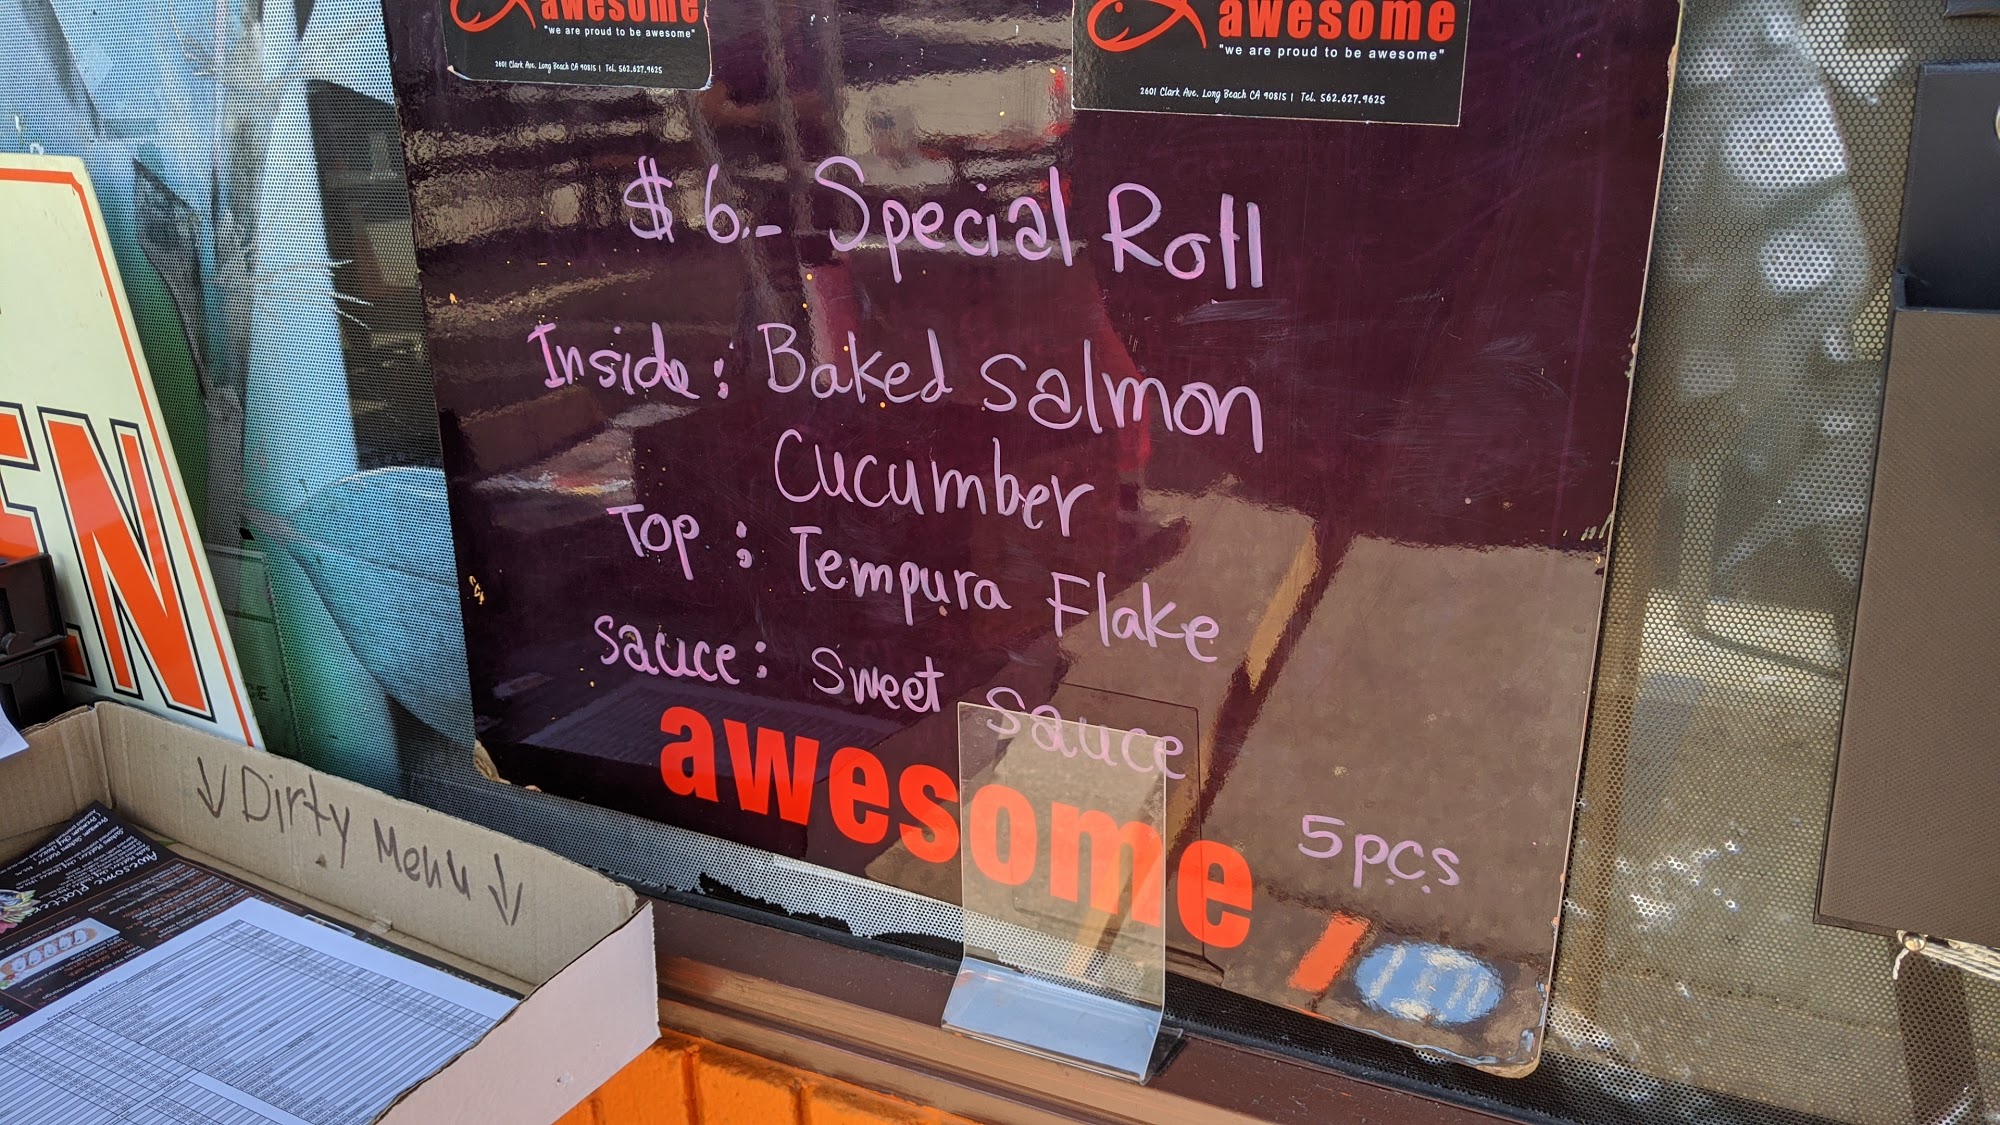 awesome
"we are proud to be awesome"
2601 Clark Ave. Long Beach CA 90815 | Tel. 562.627.9625
awesome
"we are proud to be awesome"
2601 Clark Ave. Long Beach CA 90815 | Tel. 562.627.9625
$6.- Special Roll
Inside: Baked Salmon
Cucumber
Top: Tempura Flake
Sauce: Sweet Sauce
awesome
5pcs
EN
↓ Dirty Menu ↓
Awesome Platters